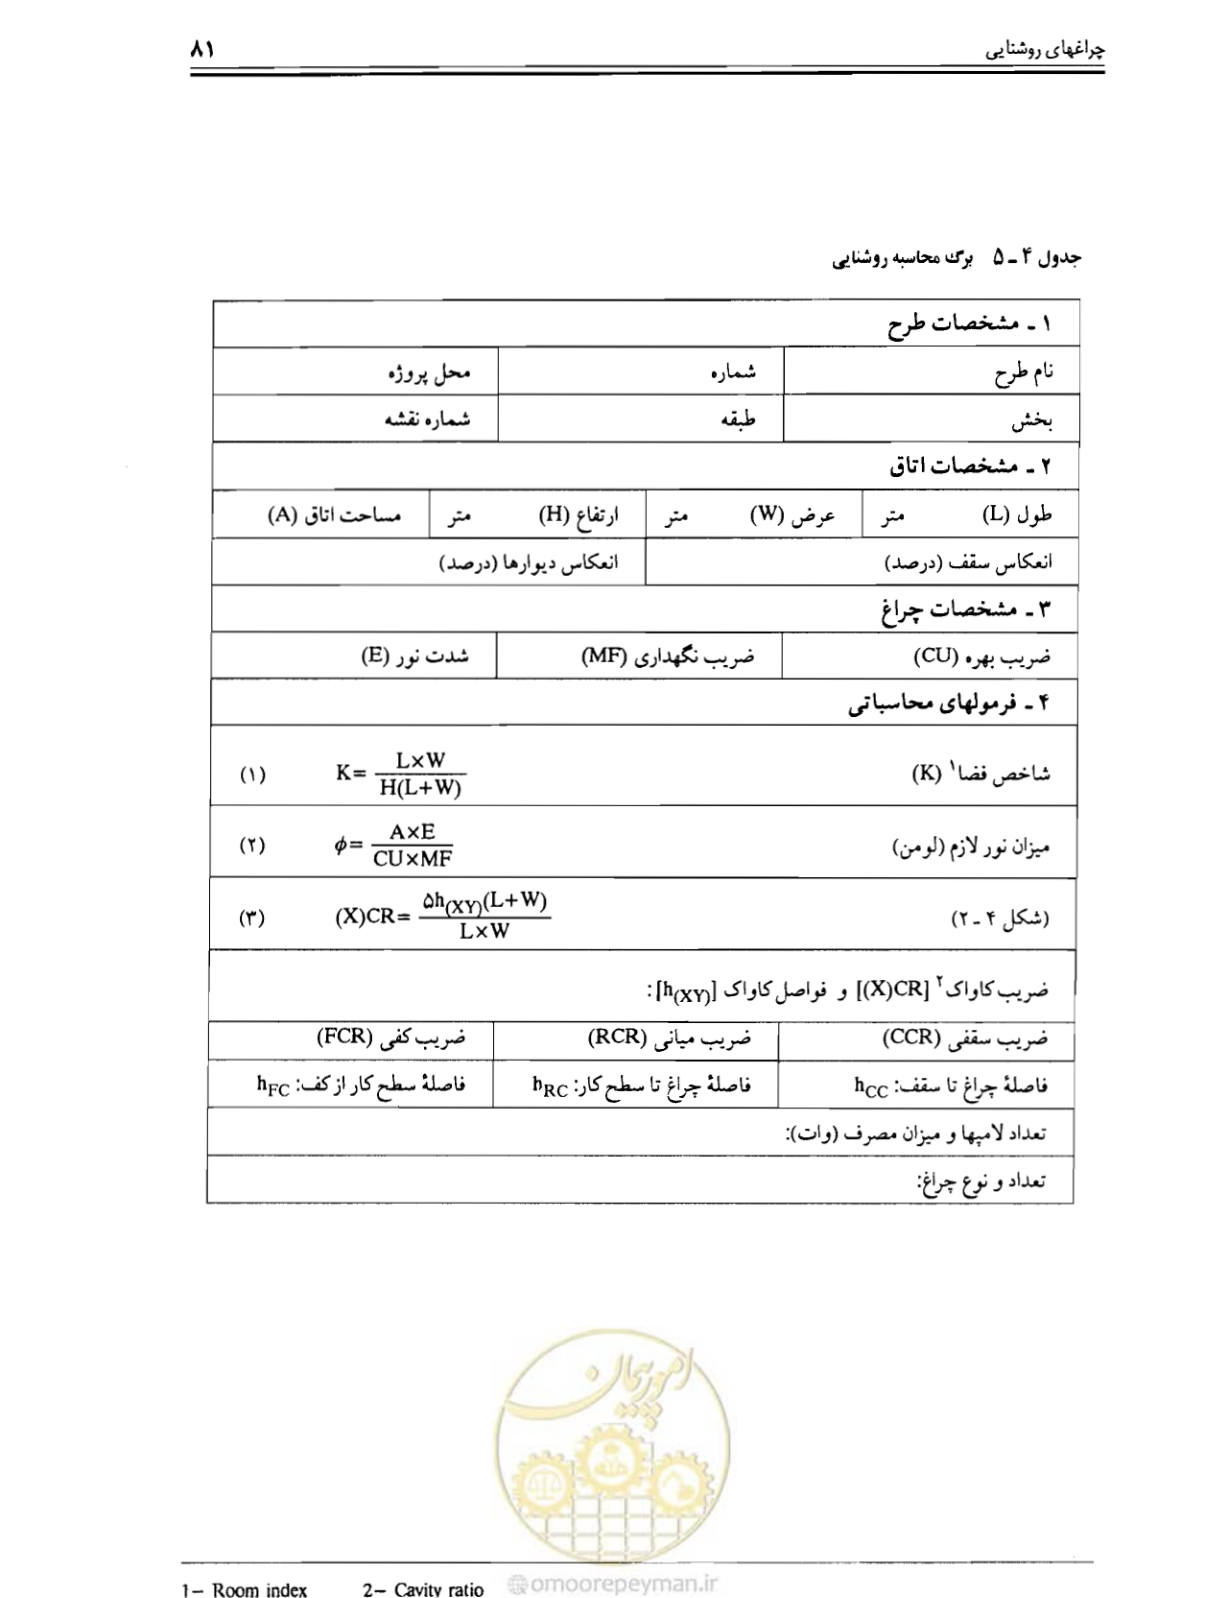 چراغهای روشنایی ۸۱
جدول ۴ ـ ۵ برگ محاسبه روشنایی
۱ ـ مشخصات طرح
نام طرح شماره محل پروژه
بخش طبقه شماره نقشه
۲ ـ مشخصات اتاق
طول (L) متر عرض (W) متر ارتفاع (H) متر مساحت اتاق (A)
انعکاس سقف (درصد) انعکاس دیوارها (درصد)
۳ ـ مشخصات چراغ
ضریب بهره (CU) ضریب نگهداری (MF) شدت نور (E)
۴ ـ فرمولهای محاسباتی
شاخص فضا۱ (K) K= L×W / H(L+W) (۱)
میزان نور لازم (لومن) ϕ= A×E / CU×MF (۲)
(شکل ۴ ـ ۲) (X)CR= ۵h(XY)(L+W) / L×W (۳)
ضریب کاواک۲ [(X)CR] و فواصل کاواک [h(XY)]:
ضریب سقفی (CCR) ضریب میانی (RCR) ضریب کفی (FCR)
فاصلهٔ چراغ تا سقف: hCC فاصلهٔ چراغ تا سطح کار: hRC فاصلهٔ سطح کار از کف: hFC
تعداد لامپها و میزان مصرف (وات):
تعداد و نوع چراغ:
امور پیمان
1– Room index 2– Cavity ratio
@omoorepeyman.ir